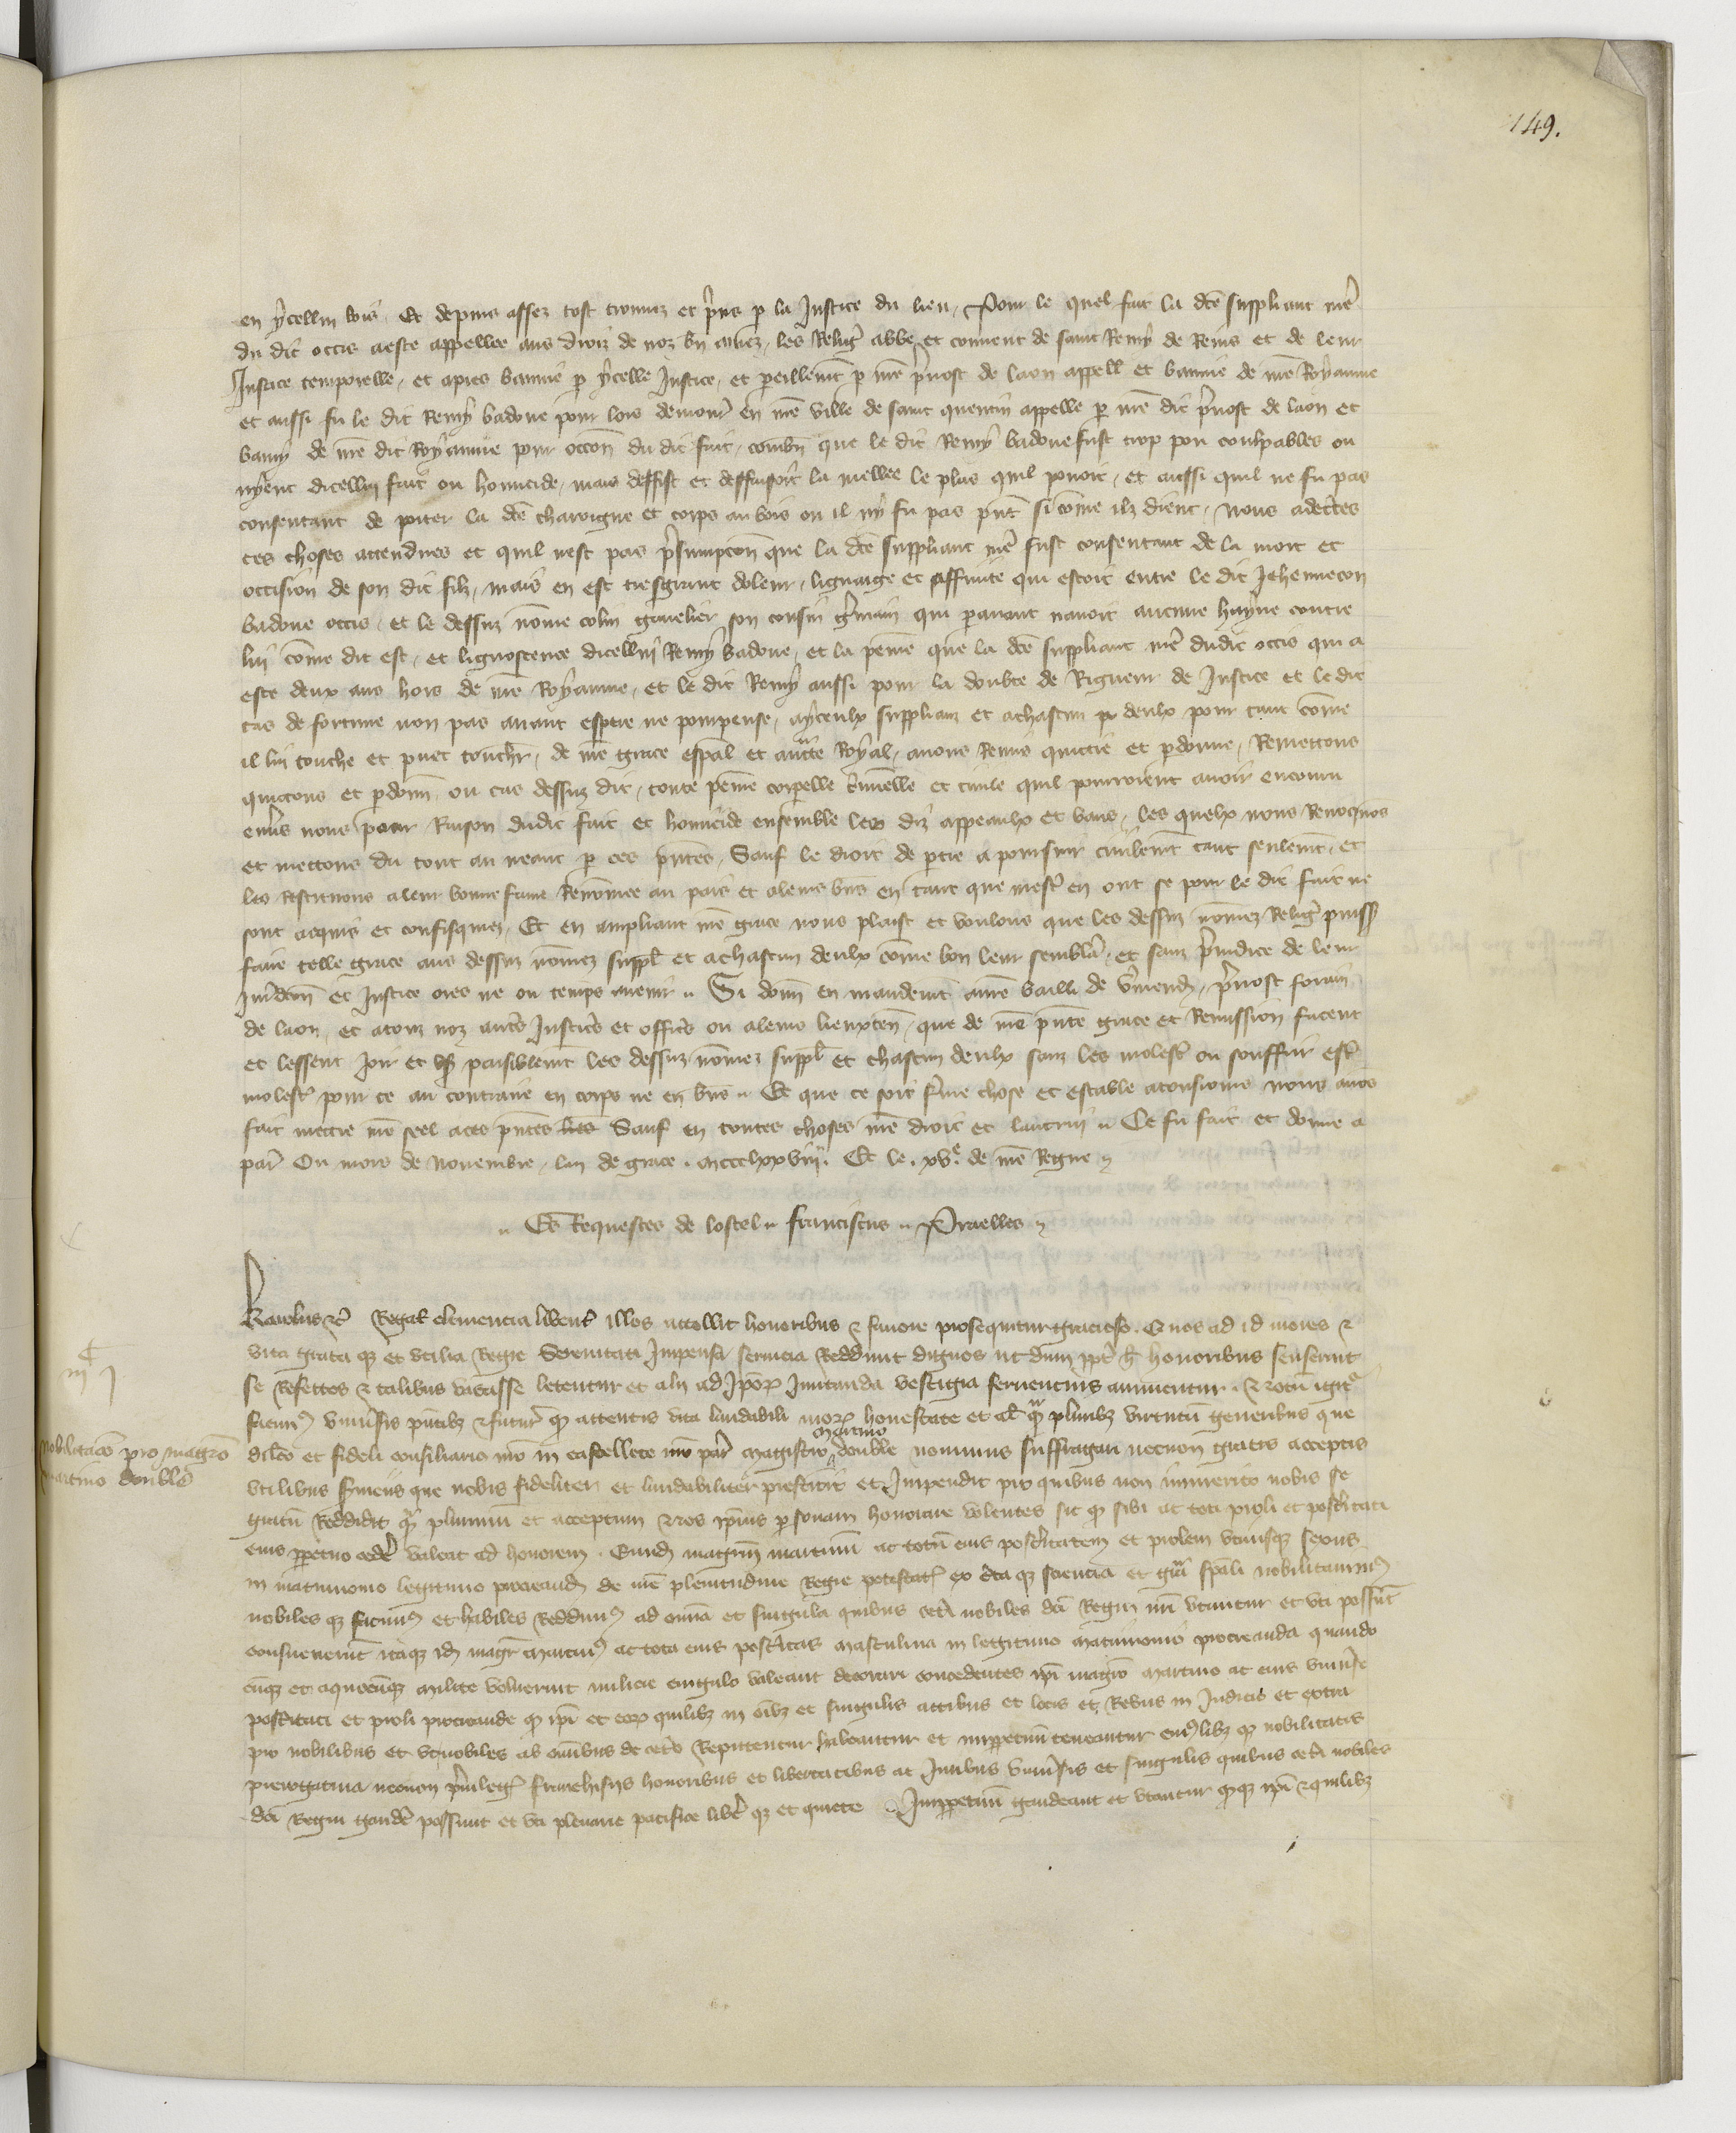 149.
en ycellui bois. Et depuis assez tost trouvez et p̃ris p la Justice du lieu, Pour le quel fait la dc̃e suppliant mẽ
du dit occis a este appellee aus droiz de noz bñ amez, les Relig̃ abbe et couvent de saint Remy de Reins et de leur
Justice temporelle, et apres bannie p ycelle Justice, et pareillemt̃ p nr̃e p̃vost de laon appell̃ et bannie de nr̃e Royaume
et aussi fu le dit Remy badoue pour lors demour̃ en nr̃e ville de saint quentin appelle par nr̃e dit p̃vost de laon et
bany de nr̃e dit Royaume pour occõn du dit fait, combñ que le dit Remy badoue fust trop pou coulpables ou
nyent dicellui fait ou homicide, mais deffist et deffaisoit la mellee le plus quil pouoit, et aussi quil ne fu pas
consentant de porter la dc̃e charoigne et corps au bois ou il ny fu pas p̃nt si cõme ilz dient, Nous adectes
ces choses attendues et quil nest pas p̃sumpcõn que la dc̃e suppliant mẽ fust consentant de la mort et
occision de son dit filz, mais en est tresgrant doleur, lignaige et affinite qui estoit entre le dit Jehennecon
badoue occis, et le dessuz nõme colin gravelier son cousin g̃main qui paravant navoit aucune hayne contre
lui cõme dit est, et lignoscence dicellui Remy badoue, et la peine que la dc̃e suppliant mẽ dudit occis qui a
este deux ans hors de nr̃e Royaume, et le dit Remy aussi pour la doubte de Rigueur de Justice et le dit
cas de fortune non pas avant esp̃rie ne pourpense, aycculx supplians et a chascun deulx pour tant cõme
il lui touche et puet touchr̃, de nr̃e grace esp̃al et auct̃te Royal, avons Remis quittie et pdonne, Remettons
quittons et pdonñ, ou cas dessuz dit, toute peine corporelle c̃minelle et civile quil pourroient avoir encouru
env̾s nous pour Raison dudit fait et homicide ensemble les diz appeaulx et bans, les quelx nous Revoqnos
et mettons du tout au neant p ces p̃ntes, Sauf le droit de ptie a poursuir civilemt̃ tant seulemt̃, et
les restituons a leur bonne fame Renõmee au pais et a leurs biñs en tant que mest̃ en ont se pour le dit fait ne
sont acquis et confisquiez, Et en ampliant nr̃e grace nous plaist et voulons que les dessuz nõmez Relig̃ puiss̃
faire telle grace aus dessuz nõmez suppl̃ et a chascun deulx cõme bon leur semblr̃a, et sanz p̃iudice de leur
Jurdcõn et Justice ores ne ou temps avenir. Si donñ en mandemt̃ a nr̃e bailli de v̾mend̃, p̃vost forain
de laon, et a touz noz aut̃s Justic̃s et offic̃s ou a leurs lieuxteñ, que de nr̃e p̃nte grace et Remission facent
et lessent Joir et us̃ paisiblemt̃ les dessuz nõmez suppl̃ et chascun deulx sanz les molest̃ ou souffrir est̃
molest̃ pour ce au contraire en corps ne en biñs. Et que ce soit f̃me chose et estable a tousiours Nous avõs
fait mettre nr̃e seel a ces p̃ntes lr̃es Sauf en toutes choses nr̃e droit et lautrui. Ce fu fait et donne a
par̃ Ou mois de Novembre, lan de grace. mccclxxviij. Et le. xve. de nr̃e Regne
Es Requestes de lostel. franciscus. Praelles
Karolus &c̃ Regal̃ clemencia libent̃ illos attollit honoribus & favore prosequitur gracioso. Quos ad id mores &
vita grata qȝ et utilia Regie Serenitati Impensa servicia Reddunt dignos ut dum ppt̃ h̃ honoribus senserint
se Refectos & talibus vacasse letentur et alij ad Ipõꝝ Imitanda vestigia ferventius animentur. & notũ igit̃
facimꝰ univ̾sis p̃ntibȝ & futur̃ qd attentis vita laudabili moꝝ honestate et al̃ qm̃ pluribȝ virtutũ generibus que
Nobilitacõ pro magrõ
martino double
dilc̃o et fideli consiliario nrõ in castelleto nrõ par̃ Magistro martino double novimus suffragari necnon gratis acceptis
utilibus s̾viciis que nobis fideliter et laudabiliter prestitit et Impendit pro quibus non immerito nobis se
gratũ Reddidit qm̃ plurimũ et acceptum & nos ipsius psonam honorare volentes sic qd sibi ac toti proli et post̾itati
eius ppetuo ceder̃ valeat ad honorem. Eund̃ magrm̃ martinũ ac totã eius post̾itatem et prolem utriusqȝ sexus
in matrimonio legitimo procreand̃ de nrẽ plenitudine Regie potestat̃ ex c̃ta qȝ sciencia et grã sp̃ali nobilitamꝰ
nobiles qȝ facimꝰ et habiles Reddimꝰ ad omĩa et singula quibus cet̾i nobiles dc̃i Regni nrĩ utuntur et uti possũt
consueverũt itaqȝ id̃ magr̃ martinꝰ ac tota eius post̾itas masculina in legitimo matrimonio procreanda quando
cũqȝ et a quocũqȝ milite voluerint milicie cingulo valeant decorari concedentes ipĩ magrõ Martino ac eius univ̾se
post̾itati et proli procreande qd ipĩ et eoꝝ quilibȝ in oĩbȝ et singulis actibus et locis et Rebus in Judicio et extra
pro nobilibus et ut nobiles ab omĩbus de cet̾o Reputentur habeantur et imppetuũ teneantur quibȝ libȝ qȝ nobilitatis
prerogativa necnon p̃vileg̃ franchisijs honoribus et libertatibus ac Juribus univ̾sis et singulis quibus cet̾i nobiles
dc̃i Regni gauder̃ possunt et uti plenarie pacifice liber̃ qȝ et quiete Imppetuũ gaudeant et utantur qdqȝ ipĩ & quilibȝ